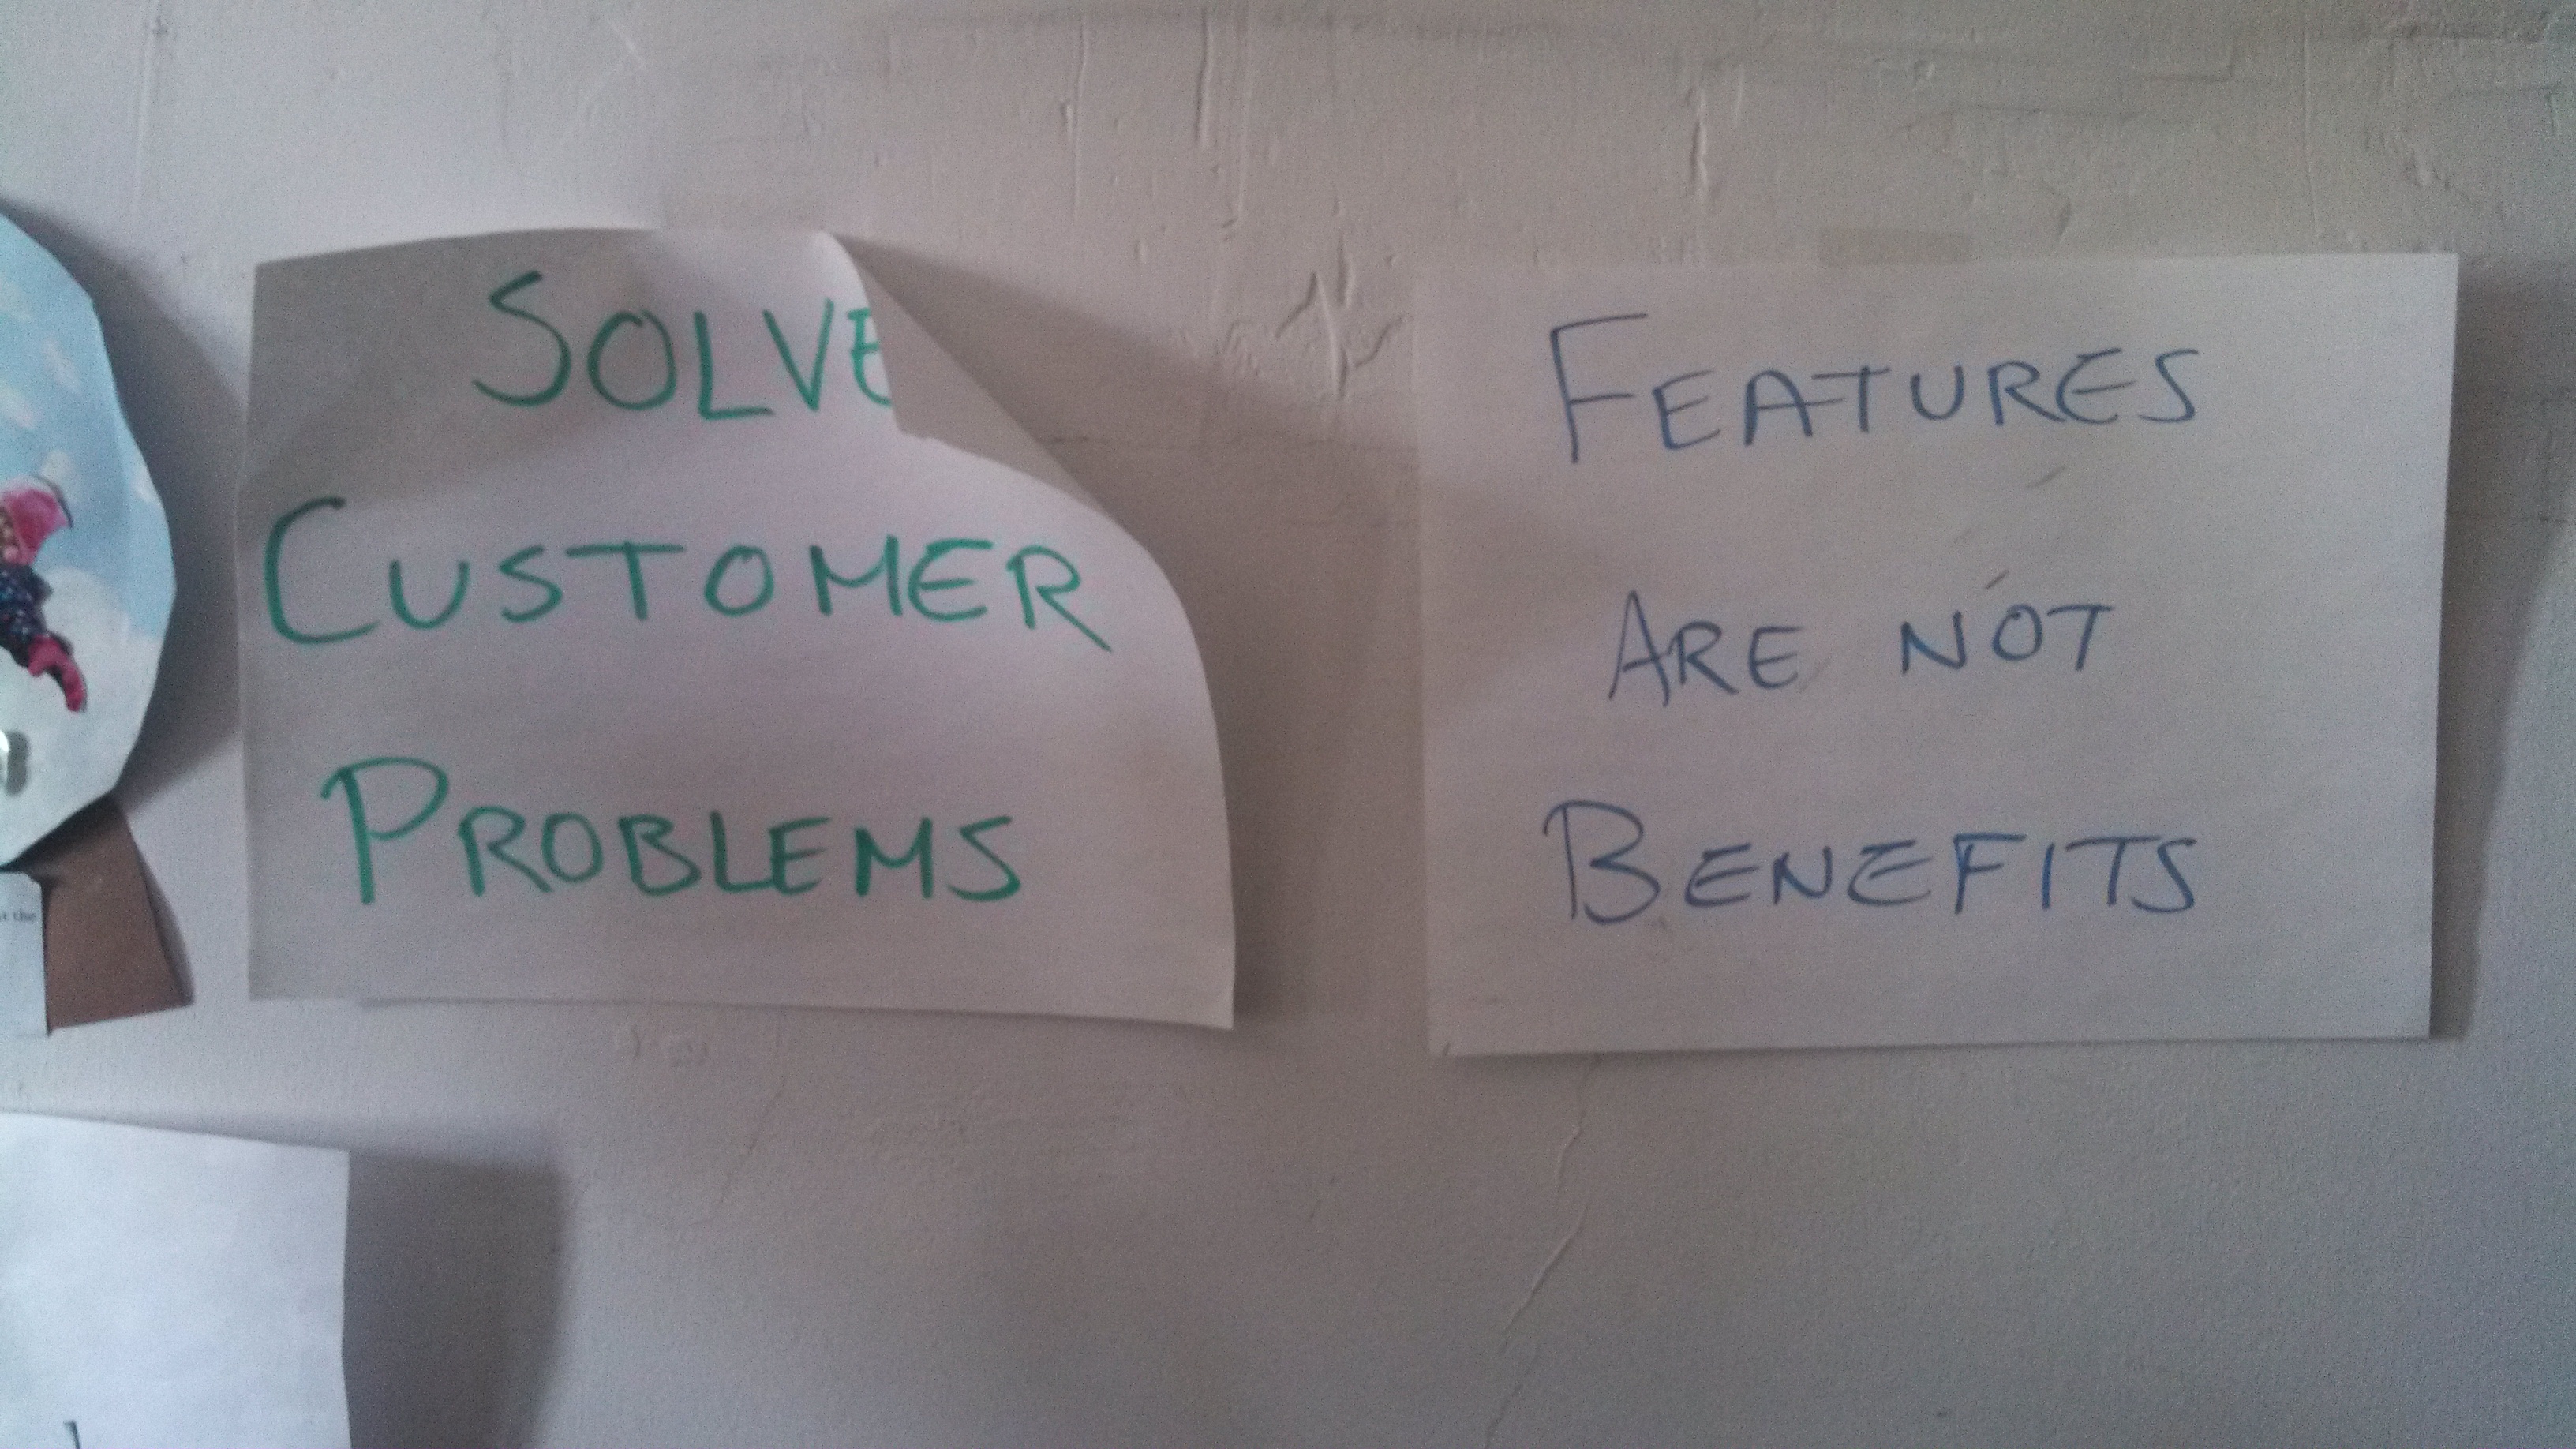 SOLVE
CUSTOMER
PROBLEMS
FEATURES
ARE NOT
BENEFITS
the